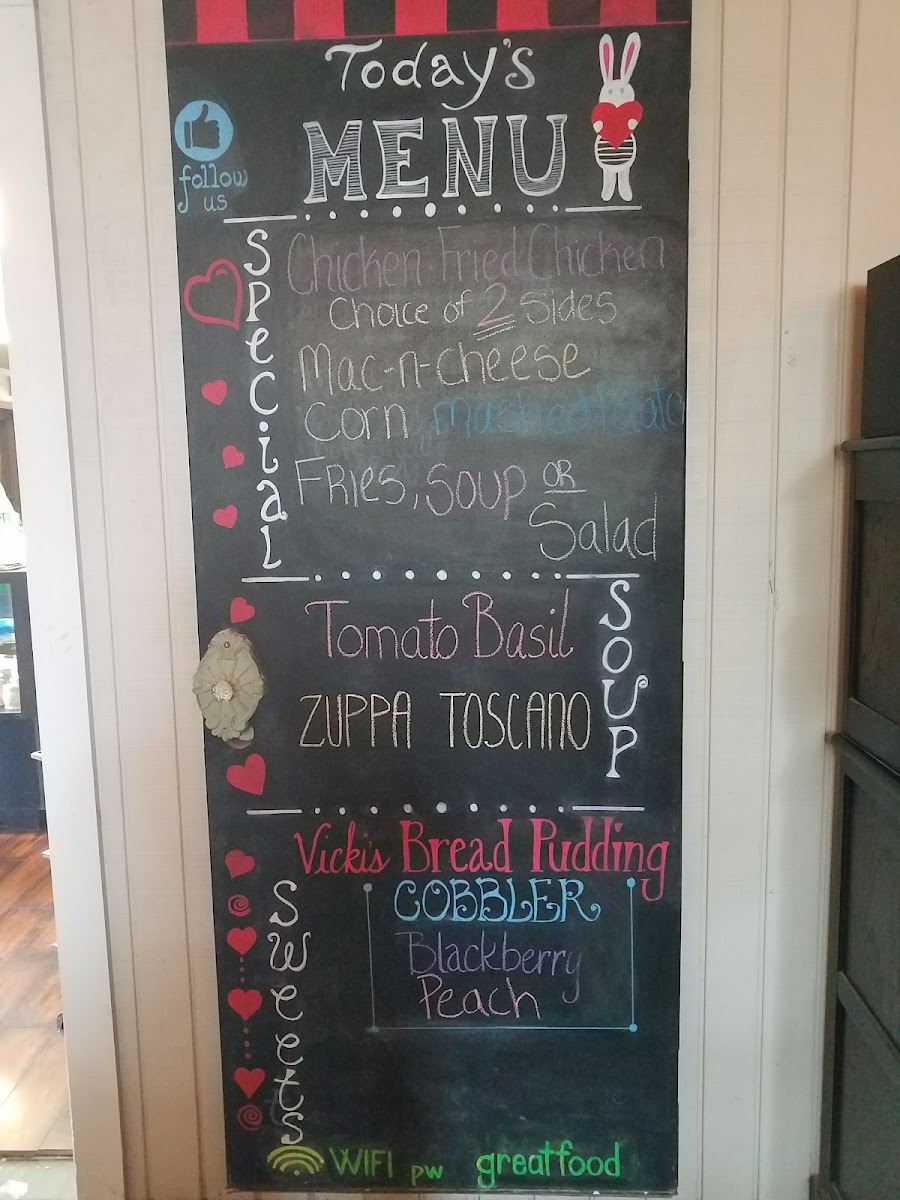 Today's
MENU
follow
us
Special
Chicken Fried Chicken
Choice of 2 Sides
Mac-n-cheese
Corn, mashed Potato
Fries, Soup OR
Salad
SOUP
Tomato Basil
ZUPPA TOSCANO
Sweets
Vicki's Bread Pudding
COBBLER
Blackberry
Peach
WIFI pw greatfood